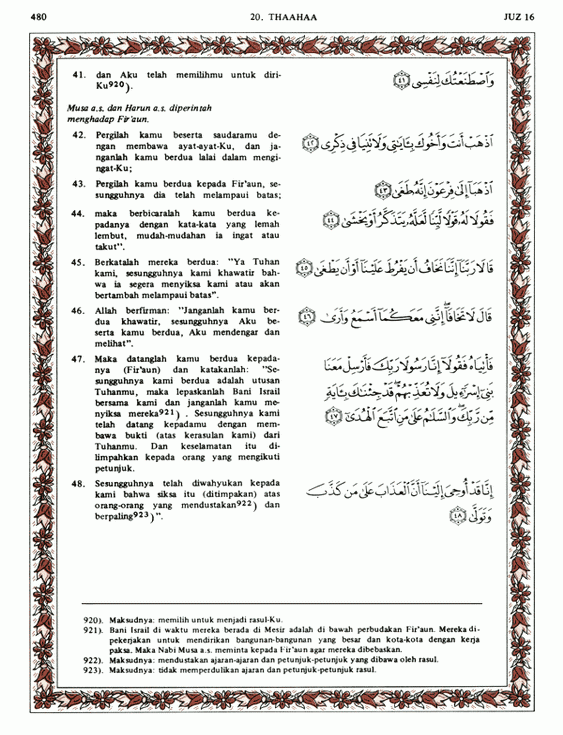 480
20. THAAHAA
JUZ 16
41. dan Aku telah memilihmu untuk diri-
Ku920).
وَٱصْطَنَعْتُكَ لِنَفْسِى ٤١
Musa a.s. dan Harun a.s. diperintah
menghadap Fir'aun.
42. Pergilah kamu beserta saudaramu de-
ngan membawa ayat-ayat-Ku, dan ja-
nganlah kamu berdua lalai dalam mengi-
ngat-Ku;
ٱذْهَبْ أَنتَ وَأَخُوكَ بِـَٔايَـٰتِى وَلَا تَنِيَا فِى ذِكْرِى ٤٢
43. Pergilah kamu berdua kepada Fir'aun, se-
sungguhnya dia telah melampaui batas;
ٱذْهَبَآ إِلَىٰ فِرْعَوْنَ إِنَّهُۥ طَغَىٰ ٤٣
44. maka berbicaralah kamu berdua ke-
padanya dengan kata-kata yang lemah
lembut, mudah-mudahan ia ingat atau
takut".
فَقُولَا لَهُۥ قَوْلًا لَّيِّنًا لَّعَلَّهُۥ يَتَذَكَّرُ أَوْ يَخْشَىٰ ٤٤
45. Berkatalah mereka berdua: "Ya Tuhan
kami, sesungguhnya kami khawatir bah-
wa ia segera menyiksa kami atau akan
bertambah melampaui batas".
قَالَا رَبَّنَآ إِنَّنَا نَخَافُ أَن يَفْرُطَ عَلَيْنَآ أَوْ أَن يَطْغَىٰ ٤٥
46. Allah berfirman: "Janganlah kamu ber-
dua khawatir, sesungguhnya Aku be-
serta kamu berdua, Aku mendengar dan
melihat".
قَالَ لَا تَخَافَآ إِنَّنِى مَعَكُمَآ أَسْمَعُ وَأَرَىٰ ٤٦
47. Maka datanglah kamu berdua kepada-
nya (Fir'aun) dan katakanlah: "Se-
sungguhnya kami berdua adalah utusan
Tuhanmu, maka lepaskanlah Bani Israil
bersama kami dan janganlah kamu me-
nyiksa mereka921) . Sesungguhnya kami
telah datang kepadamu dengan mem-
bawa bukti (atas kerasulan kami) dari
Tuhanmu. Dan keselamatan itu di-
limpahkan kepada orang yang mengikuti
petunjuk.
فَأْتِيَاهُ فَقُولَآ إِنَّا رَسُولَا رَبِّكَ فَأَرْسِلْ مَعَنَا
بَنِىٓ إِسْرَٰٓءِيلَ وَلَا تُعَذِّبْهُمْ قَدْ جِئْنَـٰكَ بِـَٔايَةٍ
مِّن رَّبِّكَ وَٱلسَّلَـٰمُ عَلَىٰ مَنِ ٱتَّبَعَ ٱلْهُدَىٰٓ ٤٧
48. Sesungguhnya telah diwahyukan kepada
kami bahwa siksa itu (ditimpakan) atas
orang-orang yang mendustakan922) dan
berpaling923)".
إِنَّا قَدْ أُوحِىَ إِلَيْنَآ أَنَّ ٱلْعَذَابَ عَلَىٰ مَن كَذَّبَ
وَتَوَلَّىٰ ٤٨
920). Maksudnya: memilih untuk menjadi rasul-Ku.
921). Bani Israil di waktu mereka berada di Mesir adalah di bawah perbudakan Fir'aun. Mereka di-
pekerjakan untuk mendirikan bangunan-bangunan yang besar dan kota-kota dengan kerja
paksa. Maka Nabi Musa a.s. meminta kepada Fir'aun agar mereka dibebaskan.
922). Maksudnya: mendustakan ajaran-ajaran dan petunjuk-petunjuk yang dibawa oleh rasul.
923). Maksudnya: tidak memperdulikan ajaran dan petunjuk-petunjuk rasul.